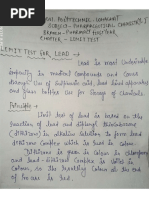 POLYTECHNIC, LUCKNOW
SUBJECT - PHARMACEUTICAL CHEMISTRY I
BRANCH - PHARMACY FIRST YEAR
CHAPTER - LIMIT TEST
LIMIT TEST FOR LEAD →
Lead is most Undesirable
impurity in medical Compounds and comes
through use of Sulphuric acid, lead lined apparatus
and glass bottles use for Storage of Chemicals.
Principle →
Limit test of lead is based on the
reaction of lead and diphenyl thiocarbazone
(dithizone) in alkaline Solution to form lead
dithizone Complex which is red in Color.
Dithizone is green in Color in chloroform
and lead-dithizone Complex is violet in
Color, so the resulting Color at the end
of process is red.